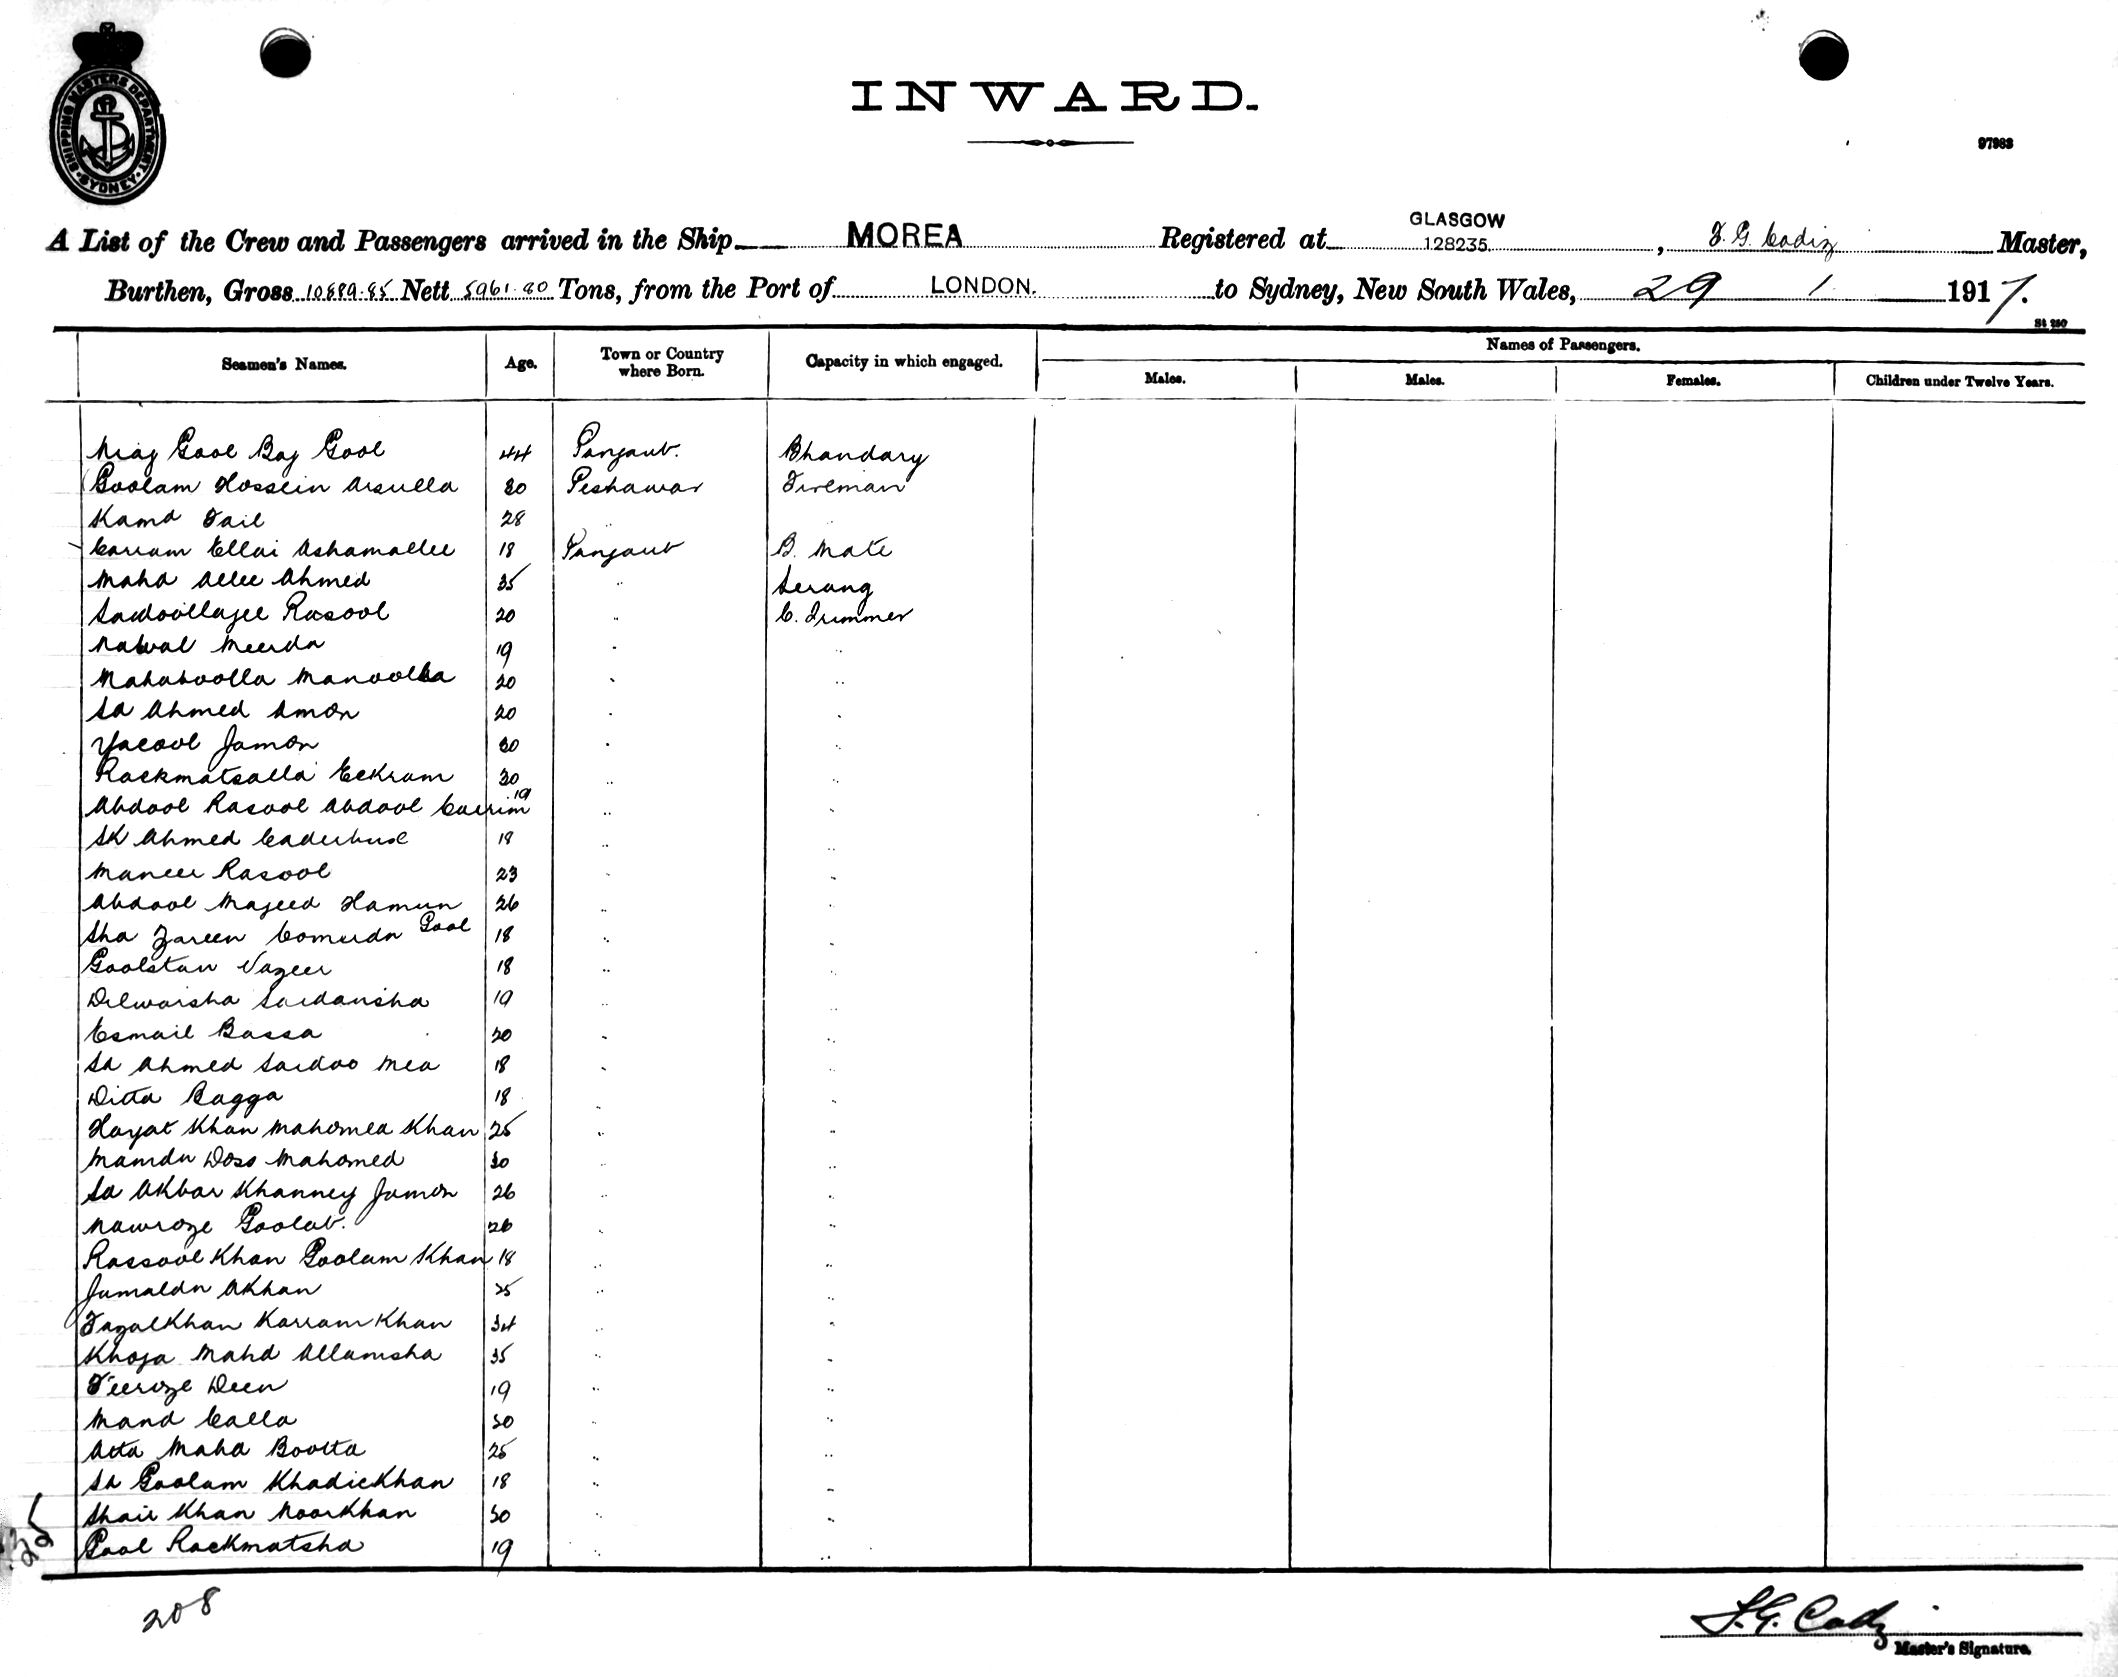 SHIPPING MASTERS DEPARTMENT SYDNEY
INWARD.
97983
A List of the Crew and Passengers arrived in the Ship MOREA Registered at GLASGOW 128235, F. G. Cadiz Master,
Burthen, Gross 10889.85 Nett 5961.80 Tons, from the Port of LONDON. to Sydney, New South Wales, 29 1 1917.
St 250
Seamen's Names. Age. Town or Country where Born. Capacity in which engaged. Names of Passengers.
Males. Males. Females. Children under Twelve Years.
Niaz Gool Baz Gool 44 Punjaub. Bhandary
Goolam Hossein Arsulla 30 Peshawar Fireman
Kamd Fail 28 " "
Carram Ellai Ashamallee 18 Punjaub B. Mate
Mahd Allee Ahmed 35 " Serang
Sadoollajee Rasool 20 " C. Trimmer
Nawal Meerdn 19 " "
Mahaboolla Manoolla 20 " "
Sd Ahmed Amon 20 " "
Yacool Jamon 30 " "
Rackmatsalla Eckram 30 " "
Abdool Rasool Abdool Carrim 19 " "
Sk Ahmed Caderbux 18 " "
Maneer Rasool 23 " "
Abdool Majeed Hamun 26 " "
Sha Zareen Comurdn Gool 18 " "
Goolstan Vazeer 18 " "
Dilwarsha Saidansha 19 " "
Esmail Bassa 20 " "
Sd Ahmed Saidoo Mea 18 " "
Ditta Bagga 18 " "
Hayat Khan Mahomed Khan 25 " "
Mamdn Doss Mahomed 30 " "
Sd Akbar Khanney Jamon 26 " "
Nawroze Goolab. 26 " "
Rassool Khan Goolam Khan 18 " "
Jumaldn Akhan 25 " "
Fazal Khan Karram Khan 34 " "
Khoja Mahd Allamsha 35 " "
Feeroze Deen 19 " "
Mand Calla 30 " "
Atta Mahd Bootta 25 " "
Sd Goolam Khadickhan 18 " "
Shair Khan Noorkhan 30 " "
Gool Rackmatsha 19 " "
35
208
F. G. Cadiz
Master's Signature.